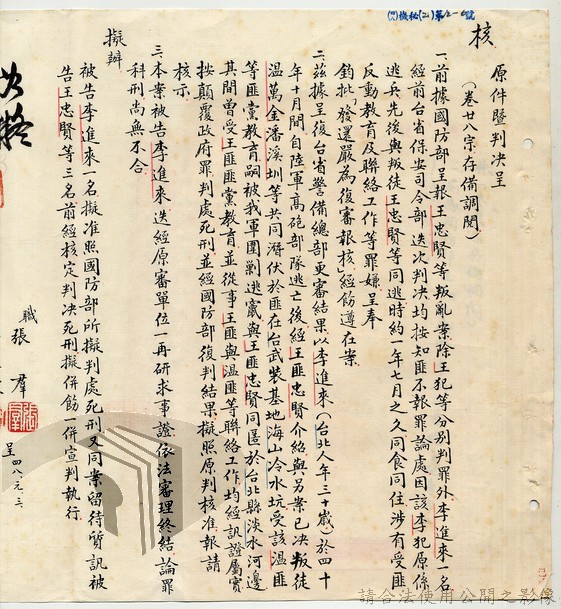 機秘(二)第
號
核
原件暨判决呈
(卷廿八宗存備調閱)
一前據國防部呈報王忠賢等叛亂案除王犯等分别判罪外李進來一名
經前台省保安司令部迭次判决均按知匪不報罪論處因該李犯原係
逃兵先後與叛徒王忠賢等同逃時約一年七月之久同食同住涉有受匪
反動教育及聯絡工作等罪嫌呈奉
鈞批「發還嚴為復審報核」經飭遵在案
二茲據呈復台省警備總部更審結果以李進來(台北人年三十歲)於四十
年十月間自陸軍高砲部隊逃亡後經王匪忠賢介紹與另案已决叛徒
温萬金潘溪圳等共同潛伏於匪在台武裝基地海山冷水坑受該温匪
等匪黨教育嗣被我軍圍剿逃竄與王匪忠賢同匿於台北縣淡水河邊
其間曾受王匪匪黨教育並從事王匪與温匪等聯絡工作均經訊證屬實
按顛覆政府罪判處死刑並經國防部復判結果擬照原判核准報請
核示
三本案被告李進來迭經原審單位一再研求事證依法審理終結論罪
科刑尚無不合
擬辦
被告李進來一名擬准照國防部所擬判處死刑又同案留待質訊被
告王忠賢等三名前經核定判决死刑擬併飭一併宣判執行
職張羣
呈四八、元、三
請合法使用公開之影像